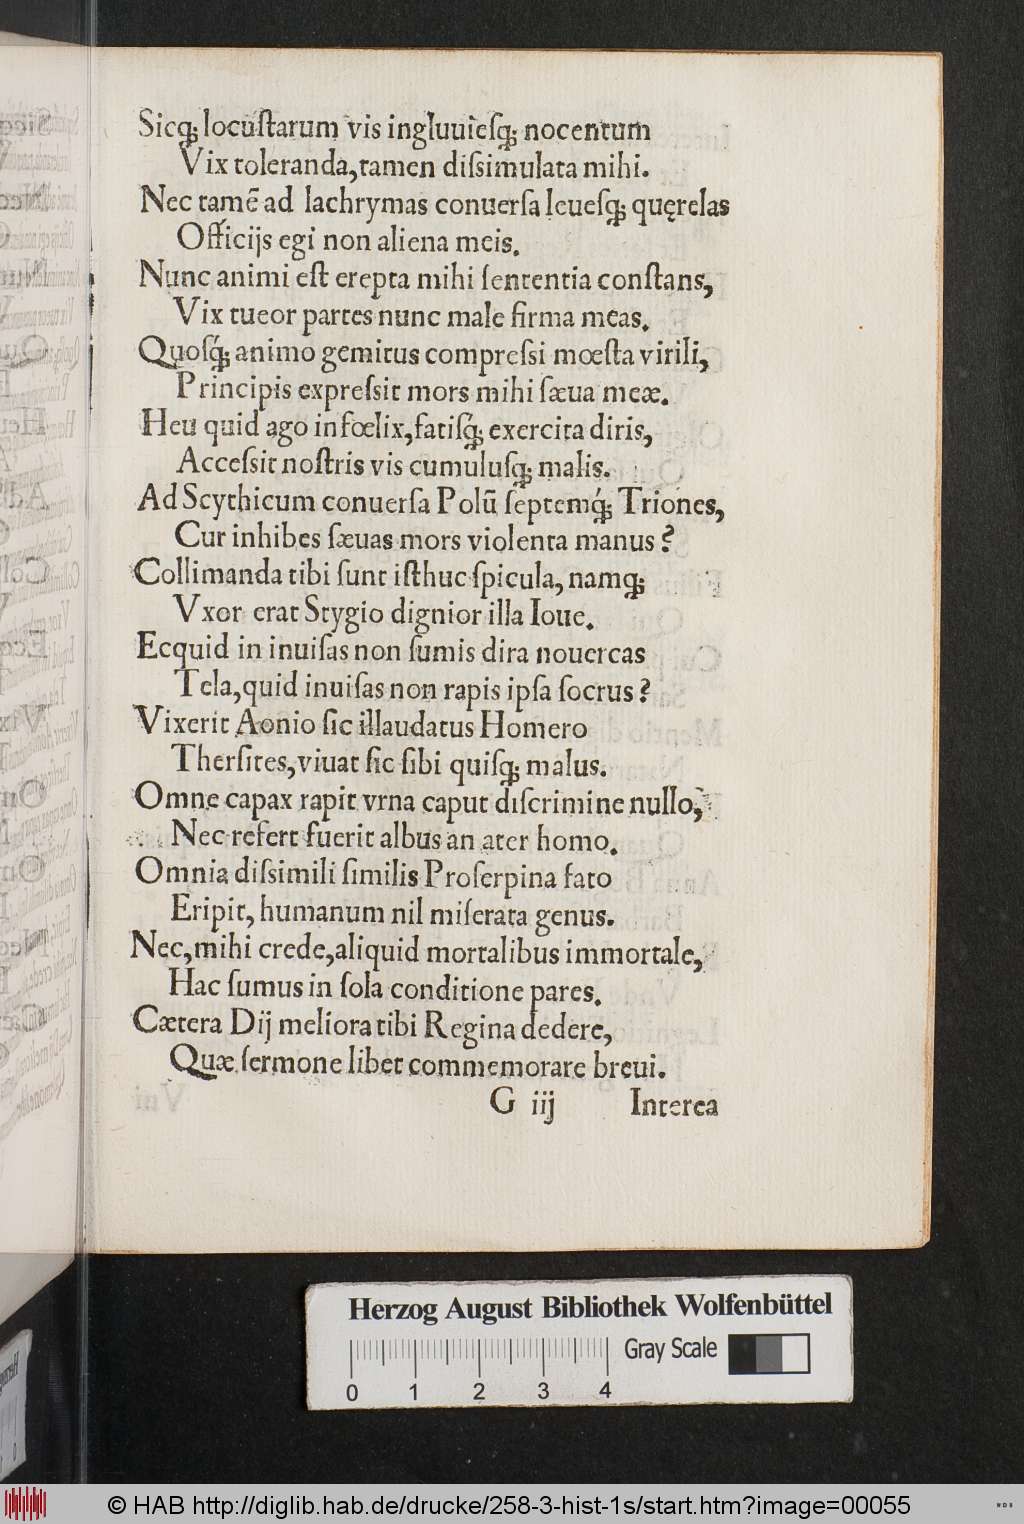 Sicq; locuſtarum vis ingluuieſq; nocentum
Vix toleranda, tamen diſsimulata mihi.
Nec tamẽ ad lachrymas conuerſa leueſq; quęrelas
Officijs egi non aliena meis.
Nunc animi eſt erepta mihi ſententia conſtans,
Vix tueor partes nunc male firma meas.
Quoſq́; animo gemitus compreſsi mœſta virili,
Principis expreſsit mors mihi ſæua meæ.
Heu quid ago infœlix, fatiſq; exercita diris,
Acceſsit noſtris vis cumuluſq; malis.
Ad Scythicum conuerſa Polũ ſeptemq́; Triones,
Cur inhibes ſæuas mors violenta manus?
Collimanda tibi ſunt iſthuc ſpicula, namq;
Vxor erat Stygio dignior illa Ioue.
Ecquid in inuiſas non ſumis dira nouercas
Tela, quid inuiſas non rapis ipſa ſocrus?
Vixerit Aonio ſic illaudatus Homero
Therſites, viuat ſic ſibi quiſq; malus.
Omne capax rapit vrna caput diſcrimine nullo,
Nec refert fuerit albus an ater homo.
Omnia diſsimili ſimilis Proſerpina fato
Eripit, humanum nil miſerata genus.
Nec, mihi crede, aliquid mortalibus immortale,
Hac ſumus in ſola conditione pares.
Cætera Dij meliora tibi Regina dedere,
Quæ ſermone libet commemorare breui.
G iij Interea
Herzog August Bibliothek Wolfenbüttel
Gray Scale
0 1 2 3 4
© HAB http://diglib.hab.de/drucke/258-3-hist-1s/start.htm?image=00055